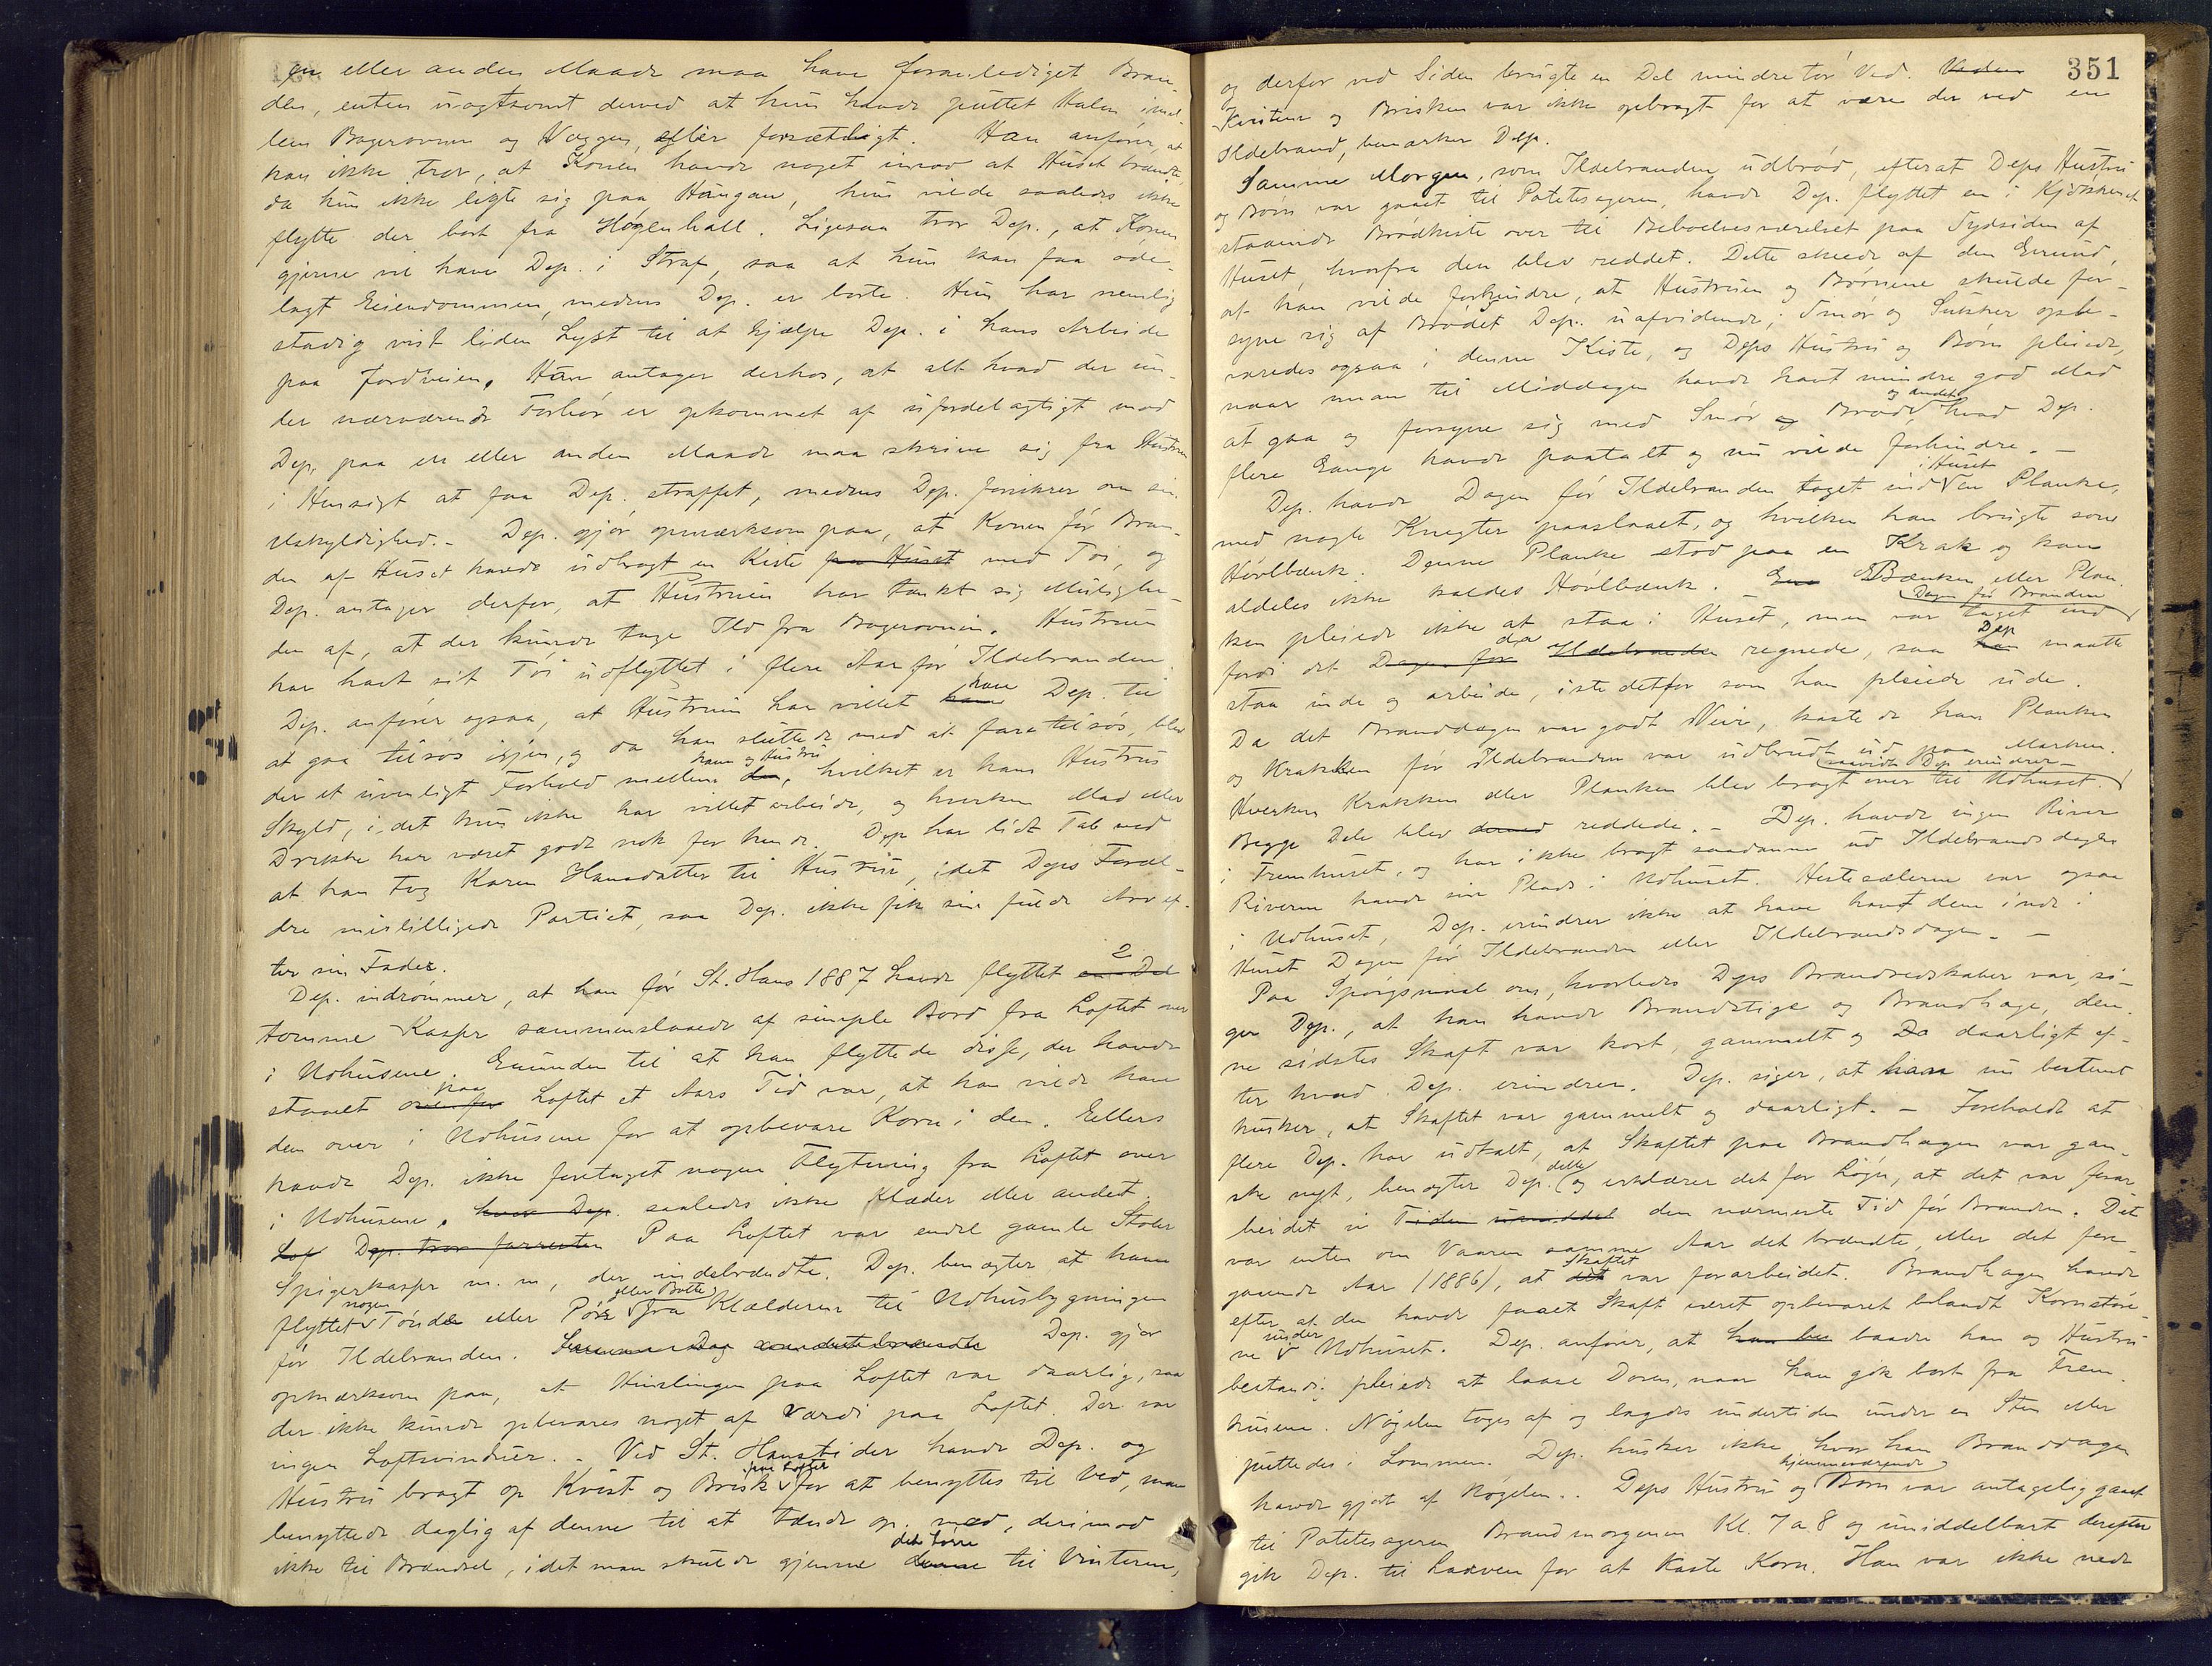 en eller anden Maade maa have foranlediget Bran-
den, enten uagtsomt derved at hun havde puttet Kalen imel-
lem Bagerovnen og Væggen, eller forsætligt. Han anfører, at
han ikke tror, at Konen havde noget imod at Huset brændte,
da hun ikke ligte sig paa Haugan, hun vilde saaledes ikke
flytte der bort fra Høgenhall. Ligesaa tror Dep., at Konen
gjerne vil have Dep. i Straf, saa at hun kan faa øde-
lagt Eiendommen, medens Dep. er borte. Hun har nemlig
stadig vist liden Lyst til at hjælpe Dep. i hans Arbeide
paa Jordveien. Han antager derhos, at alt hvad der un-
der nærværende Forhør er opkommet af ufordelagtigt mod
Dep. paa en eller anden Maade maa skrive sig fra Hustruen
i Hensigt at faa Dep. straffet, medens Dep. forsikrer om sin
Uskyldighed. - Dep. gjør opmærksom paa, at Konen før Bran-
den af Huset havde udbragt en Kiste fra Huset med Tøi, og
Dep. antager derfor, at Hustruen har tænkt sig Mulighe-
den af, at der kunde tage Ild fra Bagerovnen. Hustruen
har havt sit Tøi udflyttet i flere Aar før Ildebranden.
Dep. anfører ogsaa, at Hustruen har villet have Dep. til
at gaa tilsøs igjen, og da han sluttede med at fare tilsøs, blev
der et uvenligt Forhold mellem ham og Hustru, hvilket er hans Hustrus
Skyld, idet hun ikke har villet arbeide, og hverken Mad eller
Drikke har været godt nok for hende. Dep. har lidt Tab ved
at han tog Karen Hansdatter til Hustru, idet Deps Foræl-
dre misbilligede Partiet, saa Dep. ikke fik sin fulde Arv ef-
ter sin Fader.
Dep. indrømmer, at han før St. Hans 1887 havde flyttet en Del 2
tomme Kasser sammenslaaede af simple Bord fra Loftet over
i Udhusene. Grunden til at han flyttede disse, der havde
staaet ovenfor paa Loftet et Aars Tid var, at han vilde have
dem over i Udhusene for at opbevare Korn i dem. Ellers
havde Dep. ikke foretaget nogen Flytning fra Loftet over
i Udhusene, hvor Dep. saaledes ikke Klæder eller andet.
Lof Dep. tror forresten Paa Loftet var endel gamle Stoler
Spigerkasser m. m, der indebrændte. Dep. benægter at have
flyttet nogen Tønde eller Pøs eller Bøtte fra Kjælderen til Udhusbygningen
før Ildebranden. Dep. gjør
opmærksom paa, at Hvælvingen paa Loftet var daarlig, saa
der ikke kunde opbevares noget af Værdi paa Loftet. Der var
ingen Loftsvinduer. - Ved St. Hanstider havde Dep. og
Hustru bragt op Kvist og Brisk paa Loftet for at benyttes til Ved, man
benyttede daglig af denne til at tænde op med, derimod
ikke til Brændsel, idet man skulde gjemme denne det tørre til Vinteren,
351
og derfor ved Siden brugte en Del mindre tør Ved. Veden
Kvisten og Brisken var ikke opbragt for at være der ved en
Ildebrand, bemærker Dep.
Samme Morgen, som Ildebranden udbrød, efterat Deps Hustru
og Børn var gaaet til Potetesageren, havde Dep. flyttet en i Kjøkkenet
staaende Brødkiste over til Beboelsesværelset paa Sydsiden af
Huset, hvorfra den blev reddet. Dette skede af den Grund,
at han vilde forhindre, at Hustruen og Børnene skulde for-
syne sig af Brødet Dep. uafvidende; Smør og Sukker opbe-
varedes ogsaa i denne Kiste, og Deps Hustru og Børn pleiede,
naar man til Middagen havde havt mindre god Mad
at gaa og forsyne sig med Smør og Brød og andet hvad Dep.
flere Gange havde paatalt og nu vilde forhindre. -
Dep. havde Dagen før Ildebranden taget ind i Huset en Planke,
med nogle Knegter paaslaaet, og hvilken han brugte som
Høvlbænk. Denne Planke stod paa en Krak og kan
aldeles ikke kaldes Høvlbænk. Bænken eller Plan-
ken pleiede ikke at staa i Huset, men var Dagen før Branden taget ind
fordi det Dagen før da Ildebranden regnede, saa han Dep maatte
staa inde og arbeide, istedetfor som han pleiede ude.
Da det Branddagen var godt Veir, kastede han Planken
og Krakken før Ildebranden var udbrudt ud paa Marken.
Hverken Krakken eller Planken blev saavidt Dep erindrer bragt over til Udhuset.
Begge Dele blev derved reddede. - Dep. havde ingen River
i Fremhuset, og har ikke bragt saadanne ud Ildebrandsdagen
Riverne havde sin Plads i Udhuset. Hestesælerne var ogsaa
i Udhuset, Dep. erindrer ikke at have havt dem inde i
Huset Dagen før Ildebranden eller Ildebrandsdagen. -
Paa Spørgsmaal om, hvorledes Deps Brandredskaber var, si-
ger Dep., at han havde Brandstige og Brandhage, den-
ne sidstes Skaft var kort, gammelt og daarligt ef-
ter hvad Dep. erindrer. Dep. siger, at han nu bestemt
husker, at Skaftet var gammelt og daarligt. - Foreholdt at
flere Dep. har udtalt, at Skaftet paa Brandhagen var gan-
ske nyt, benægter Dep. dette og erklærer det for Løgn, at det var forar-
beidet i Tiden umiddel den nærmeste Tid før Branden. Det
var enten om Vaaren samme Aar det brændte, eller det fore-
gaaende Aar (1886), at det Skaftet var forarbeidet. Brandhagen havde
efter at den havde faaet Skaft været opbevaret blandt Kornstøre-
ne under Udhuset. Dep. anfører, at han be baade han og Hustru
bestandig pleiede at laase Døren, naar han gik bort fra Frem-
husene. Nøgelen toges af og lagdes undertiden under en Sten eller
puttedes i Lommen. Dep. husker ikke, hvor han Branddagen
havde gjort af Nøgelen. - Deps Hustru og hjemmeværende Børn var antagelig gaaet
til Potetesageren Brandmorgenen Kl. 7 a 8 og umiddelbart derefter
gik Dep. til Laaven for at kaste Korn. Han var ikke nede